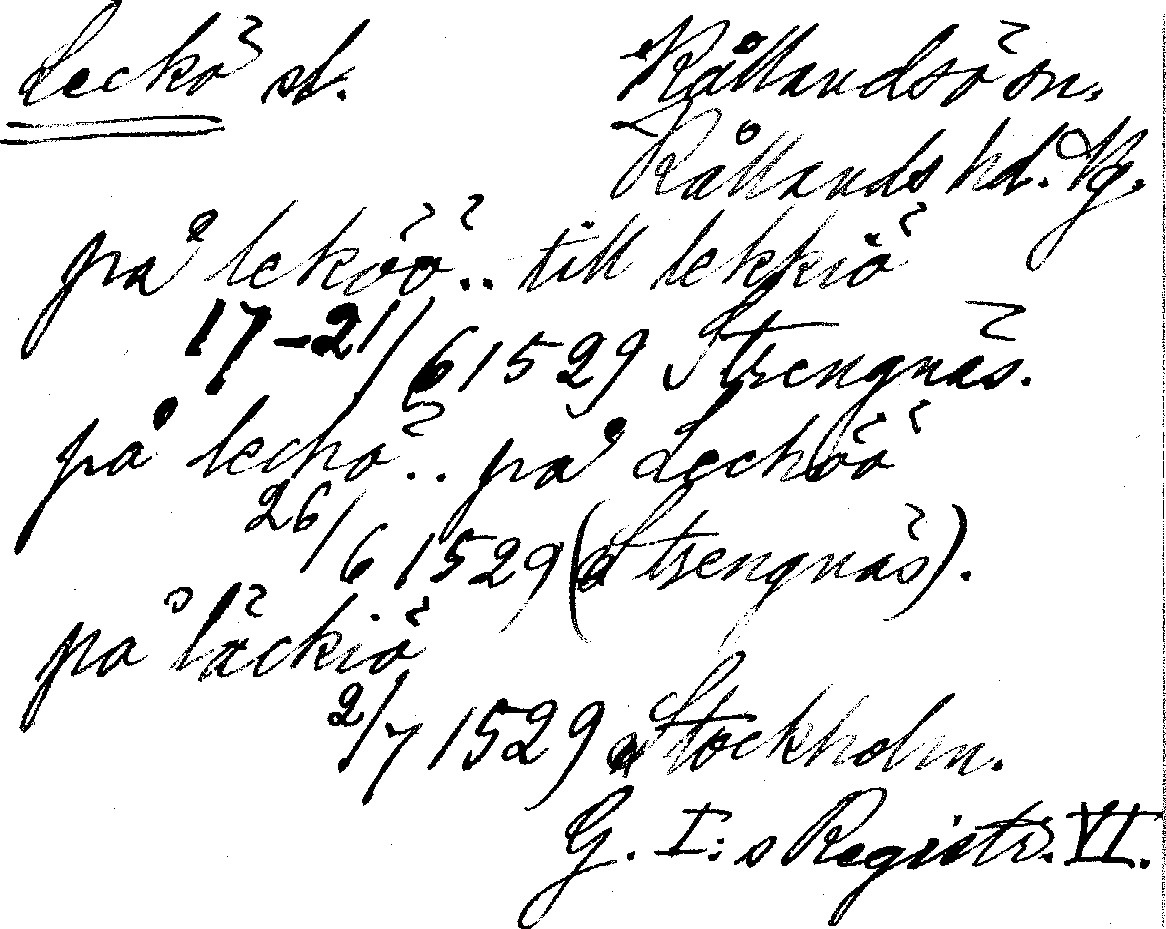 Leckö sl. Kållandsö sn.
Kållands hd. Vg.
på leköö.. till lekkiö
17-21/6 1529 Strengnäs.
på lechö.. på Lechöö
26/6 1529 (Strengnäs).
på läckiö
2/7 1529 Stockholm.
G. I:s Registr. VI.